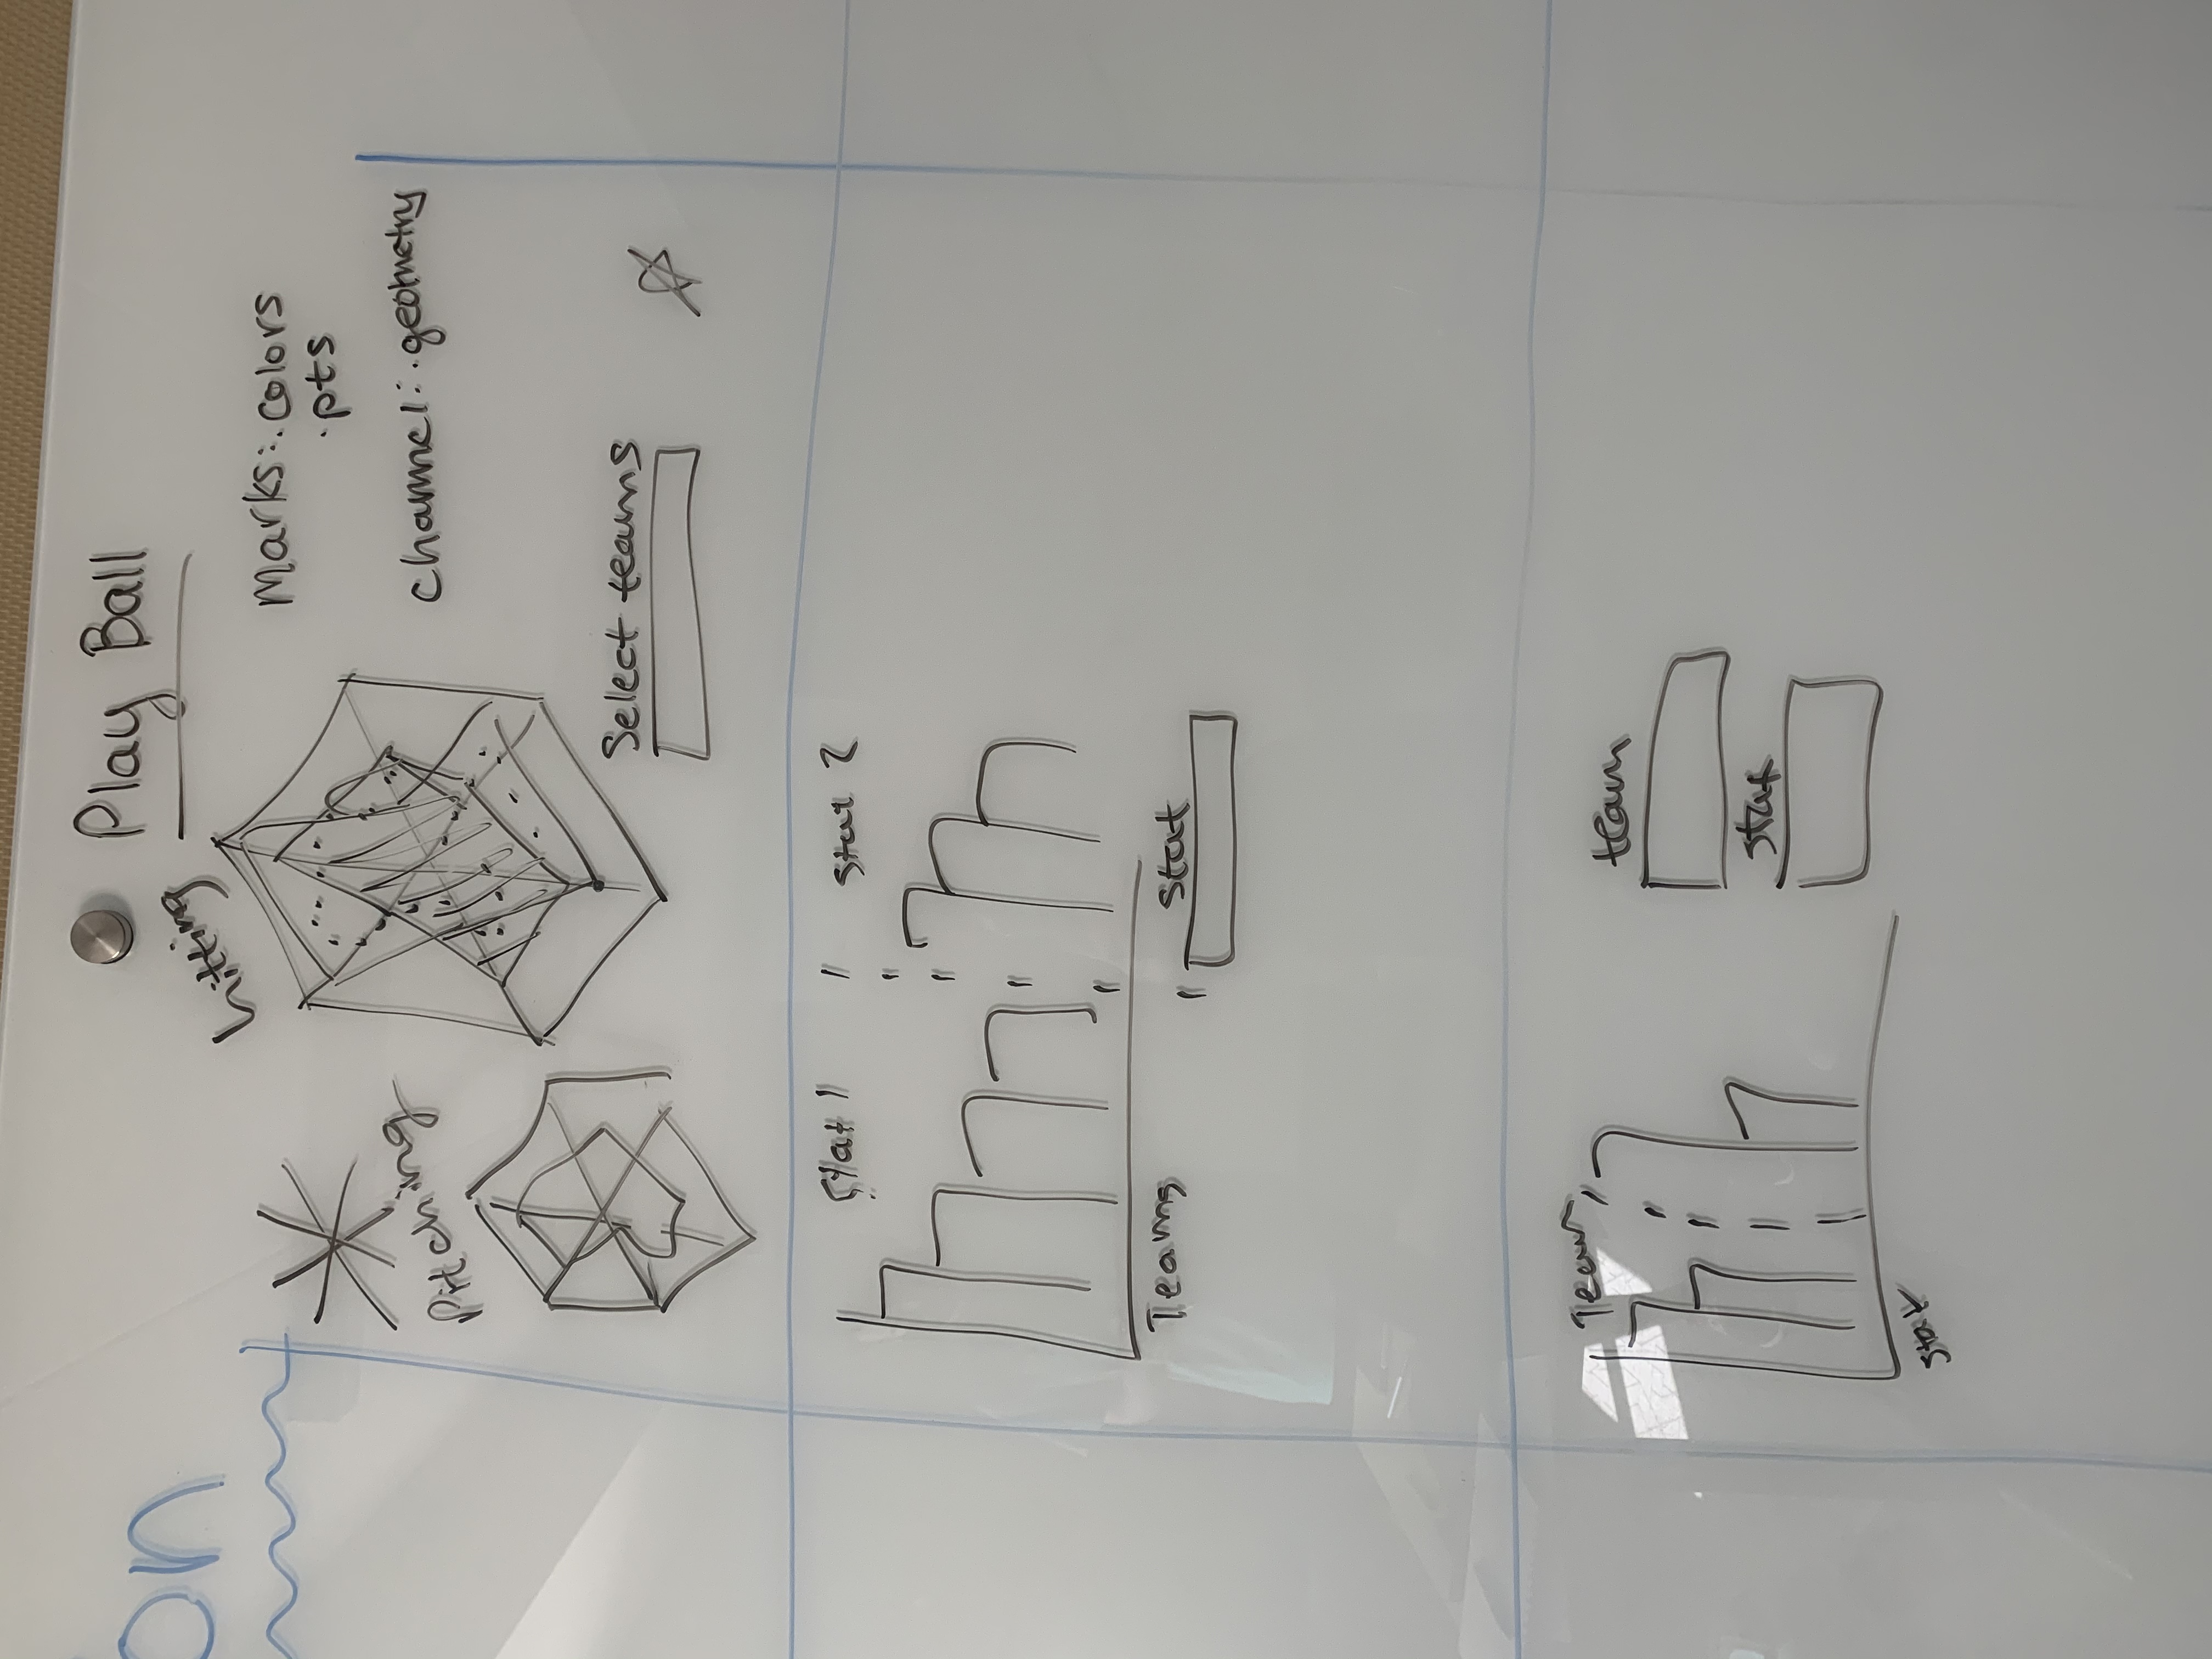 on
Play Ball
hitting
Marks: · colors
· pts
Pitching
Channel: · geometry
Select teams
Stat 1
Stat 2
Teams
stat
Team
team
stat
stat